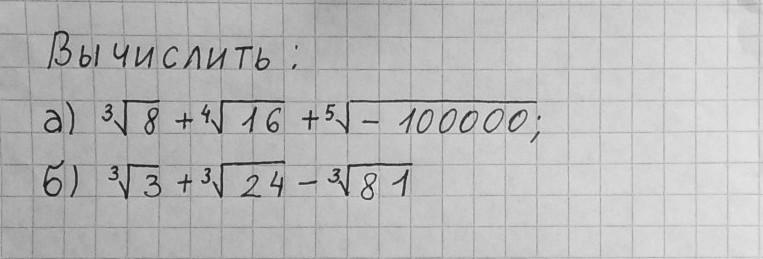 Вычислить:
а) ³√8 + ⁴√16 + ⁵√-100000;
б) ³√3 + ³√24 - ³√81